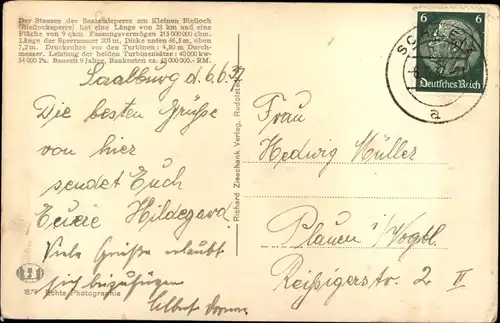 Der Stausee der Saaletalsperre am Kleinen Bleiloch
(Bleilochsperre) hat eine Länge von 28 km und eine
Fläche von 9 qkm. Fassungsvermögen 215 000 000 cbm.
Länge der Sperrmauer 205 m, Dicke unten 46,5 m, oben
7,2 m. Druckrohre vor den Turbinen: 4,80 m Durch-
messer. Leistung der beiden Turbinensätze: 40 000 kw
54 000 PS. Bauzeit 9 Jahre. Baukosten ca. 43 000 000.- RM.
Saalburg d. 6.6.37
Die besten Grüße
von hier
sendet Euch
Euere Hildegard
Viele Grüße erlaubt
sich beizufügen
Albert
1879 Echte Photographie
Richard Zieschank Verlag, Rudolstadt
6 6
Deutsches Reich
a
Frau
Hedwig Müller
Plauen i/Vogtl.
Reißigerstr. 2 II